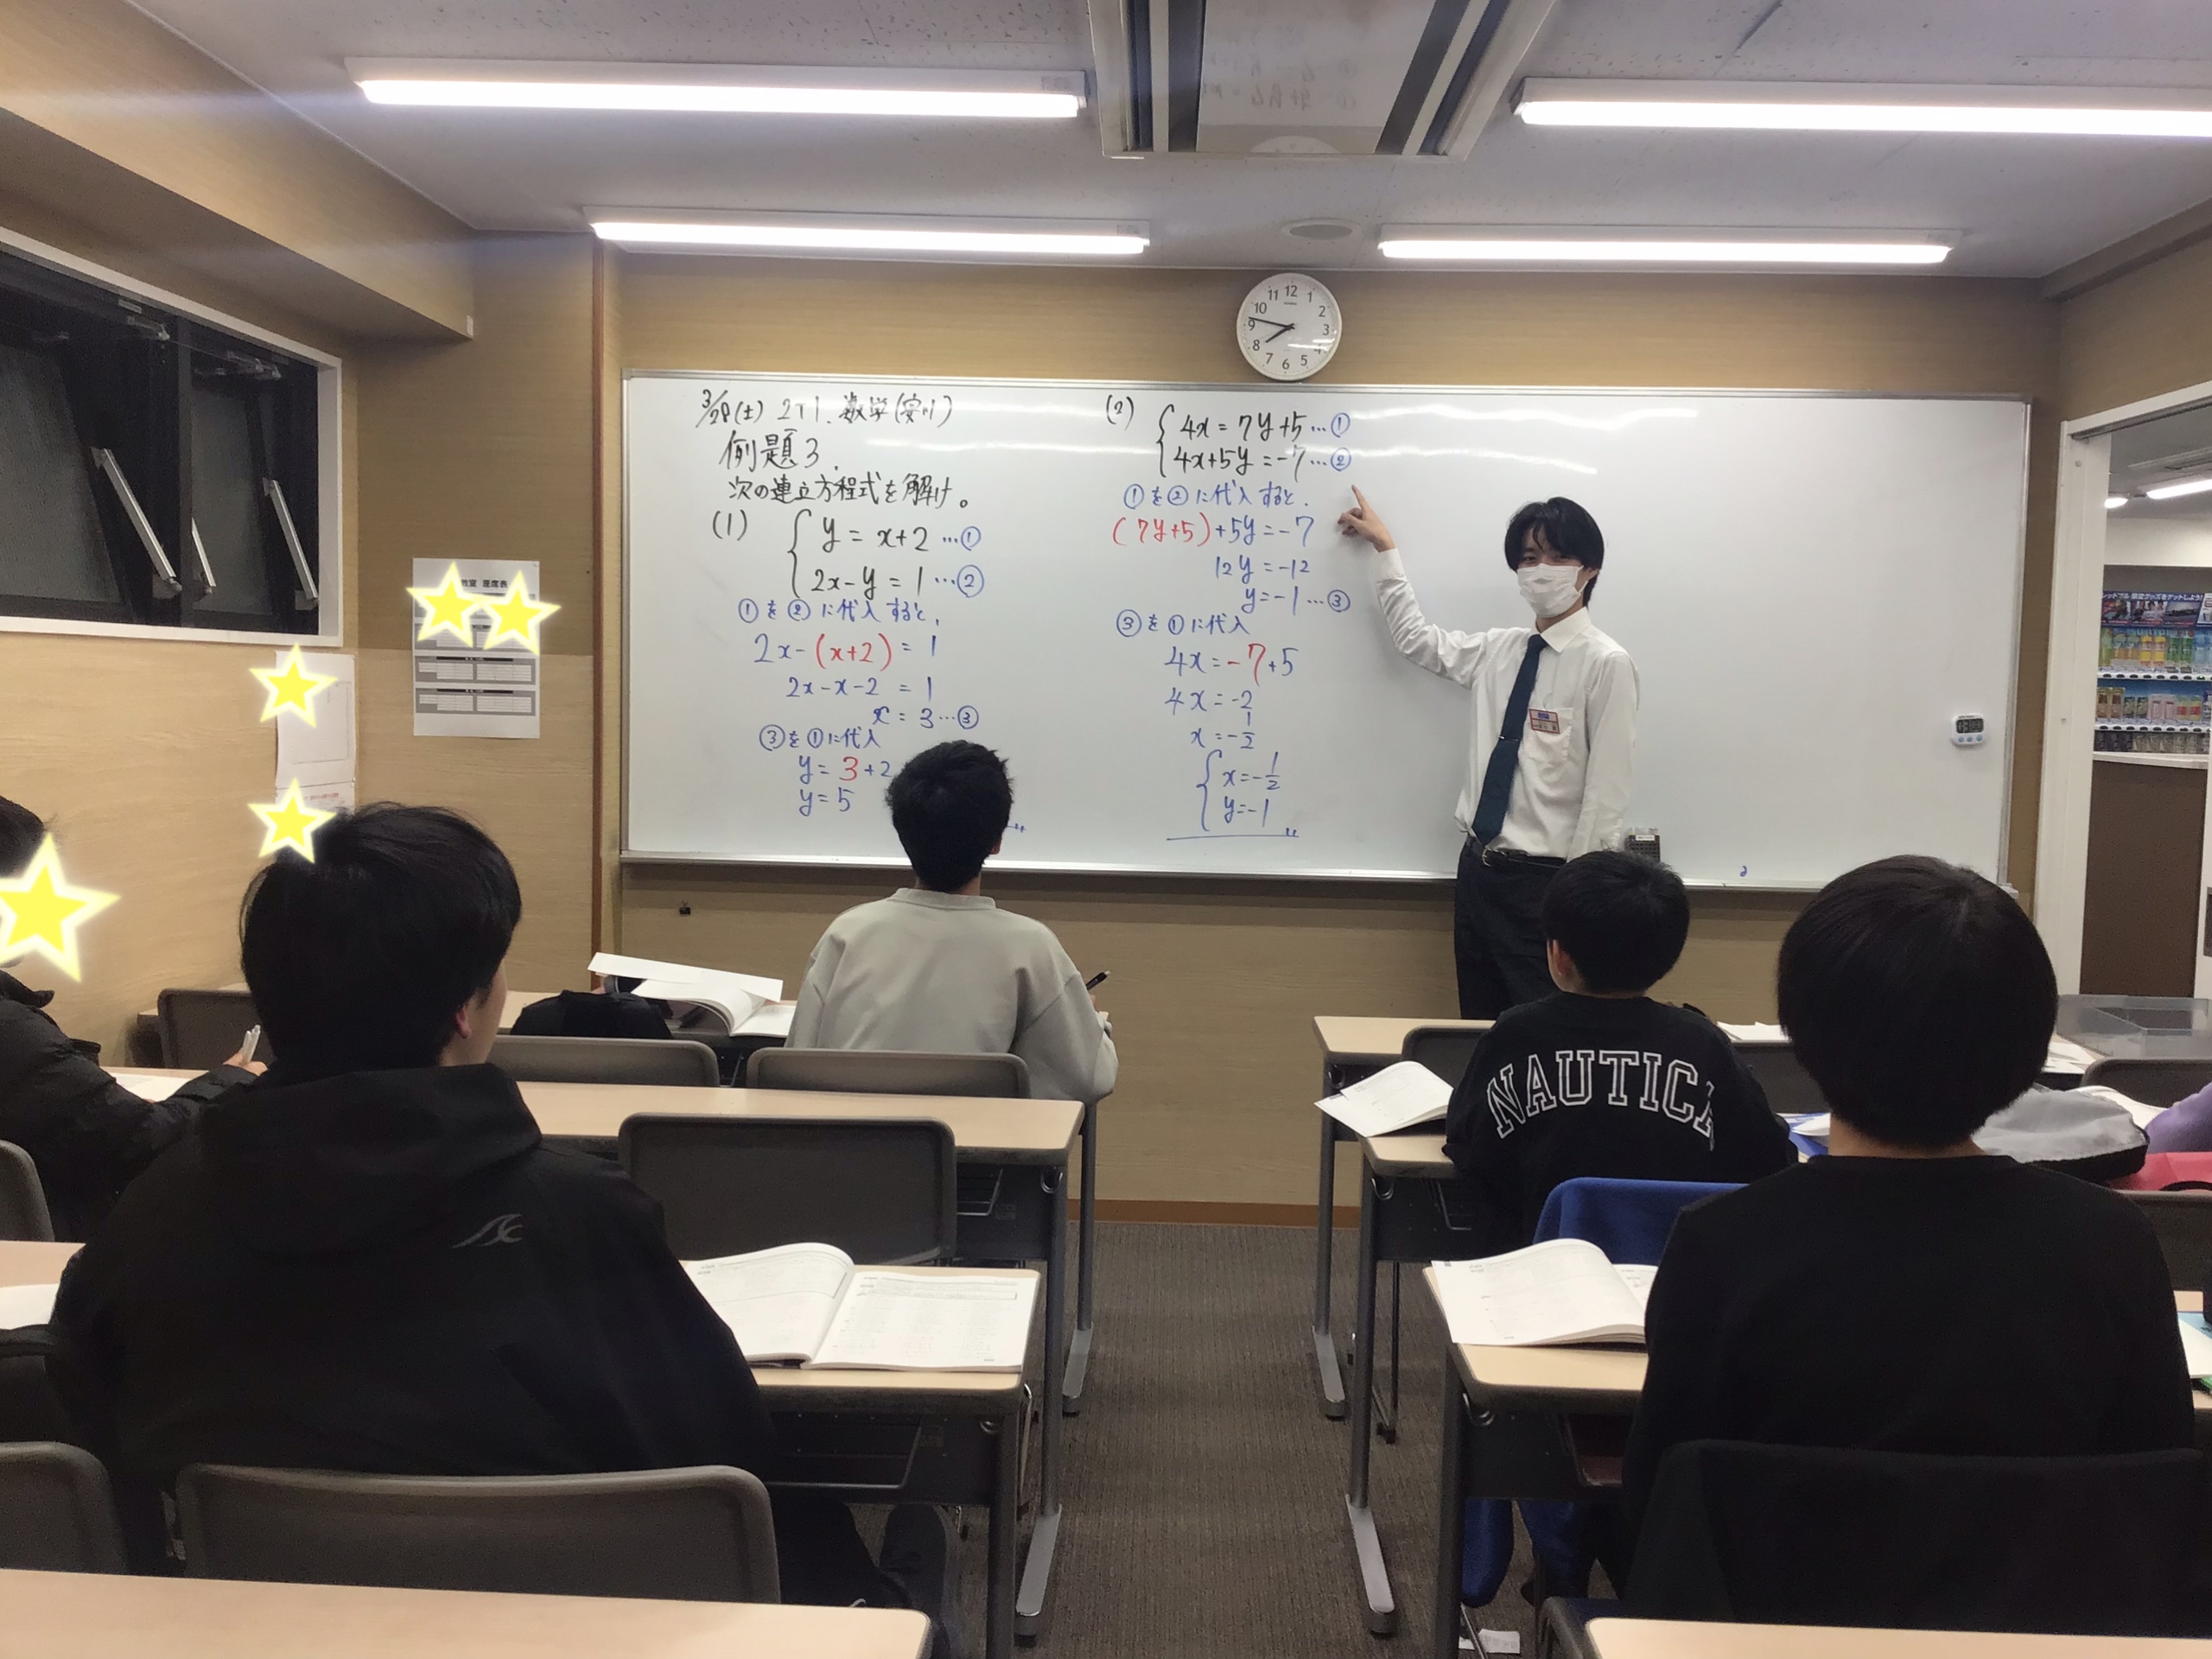 3/28(土) 2T1. 数学
例題3.
次の連立方程式を解け。
(1)
y = x+2 …①
2x-y = 1 …②
①を②に代入すると,
2x-(x+2) = 1
2x-x-2 = 1
x = 3 …③
③を①に代入
y = 3+2
y = 5
(2)
4x = 7y+5 …①
4x+5y = -7 …②
①を②に代入すると.
(7y+5)+5y = -7
12y = -12
y = -1 …③
③を①に代入
4x = -7+5
4x = -2
x = -1/2
x = -1/2
y = -1
11 12 1
10 2
9 3
8 4
7 6 5
教室 座席表
NAUTICA